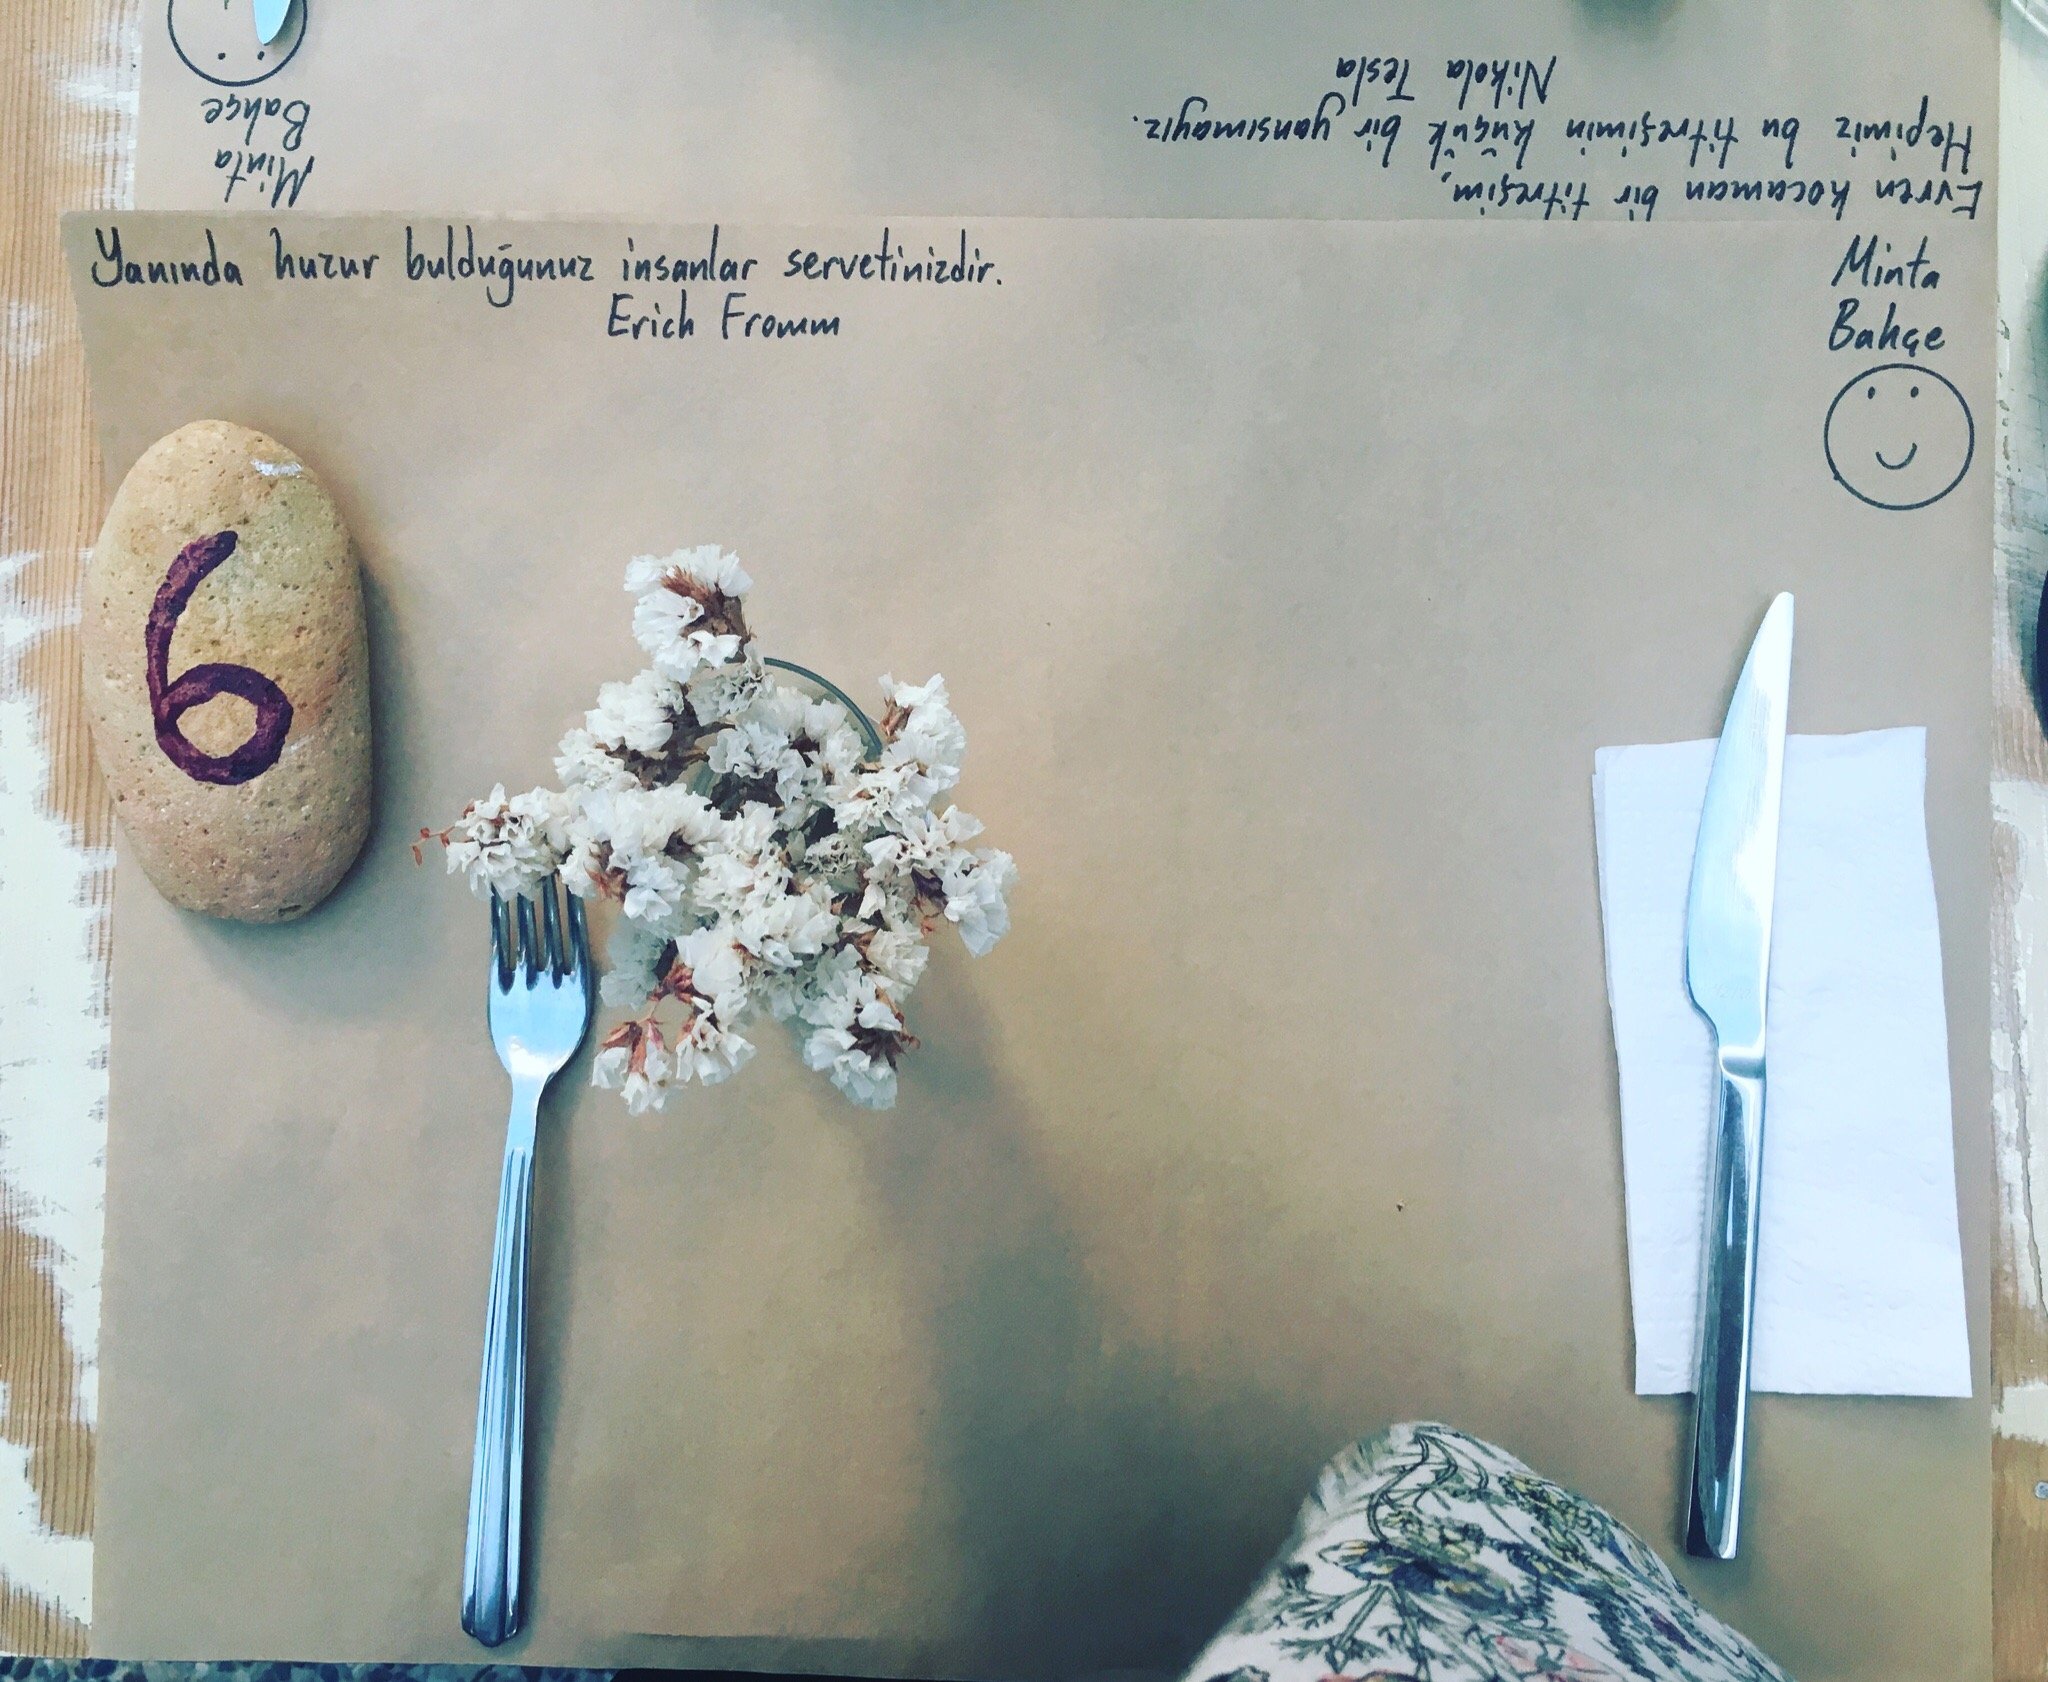 Yanında huzur bulduğunuz insanlar servetinizdir.
Erich Fromm
Minta
Bahçe
6
Evren kocaman bir titreşim,
Hepimiz bu titreşimin küçük bir yansımayız.
Nikola Tesla
Minta
Bahçe